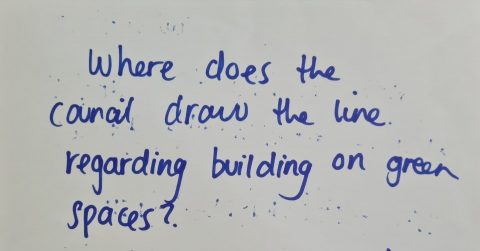 Where does the
council draw the line
regarding building on green
spaces?